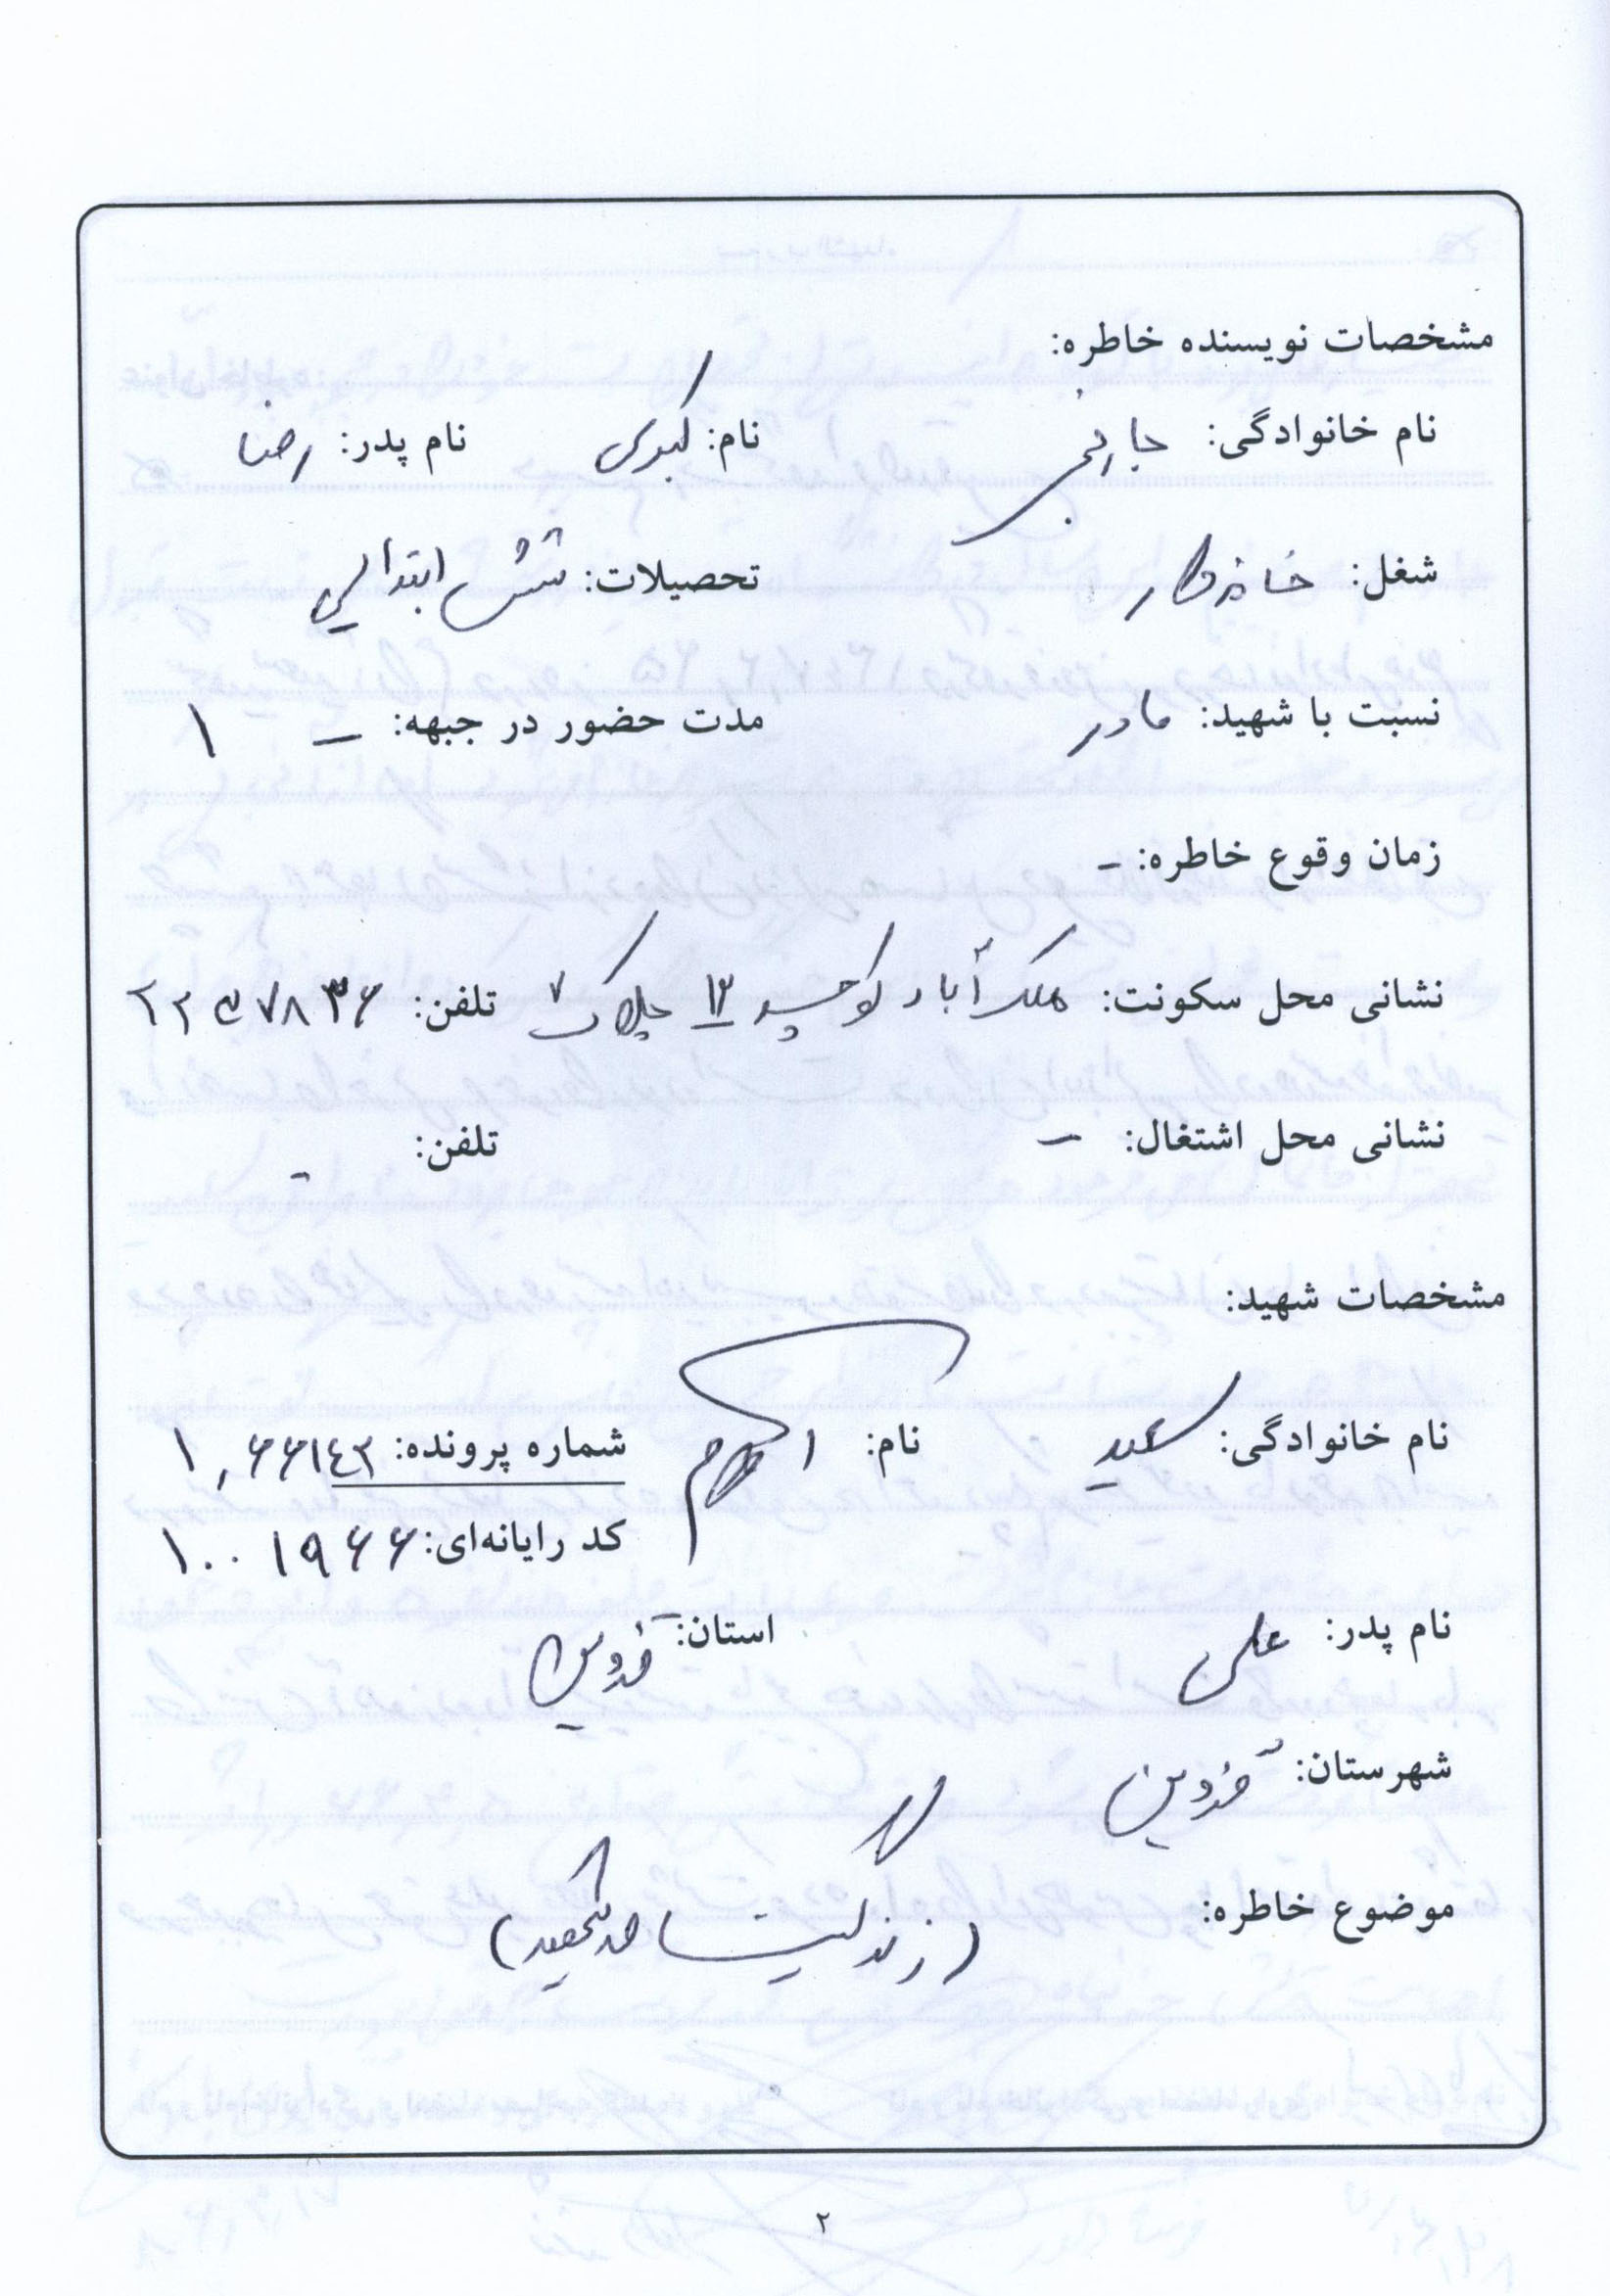 مشخصات نویسنده خاطره:
نام خانوادگی: نام: کبری نام پدر: رضا
شغل: خانه‌دار تحصیلات: شش ابتدائی
نسبت با شهید: مادر مدت حضور در جبهه: - ۱
زمان وقوع خاطره: -
نشانی محل سکونت: ملک آباد کوچه ۱۲ پلاک ۷ تلفن:
نشانی محل اشتغال: - تلفن: -
مشخصات شهید:
نام خانوادگی: سعید نام: اکرم شماره پرونده: ۱۰۶۶۱۴۲
کد رایانه‌ای: ۱۰۰۱۹۶۶
نام پدر: علی استان: قزوین
شهرستان: قزوین
موضوع خاطره: (زندگینامه شهید)
۲